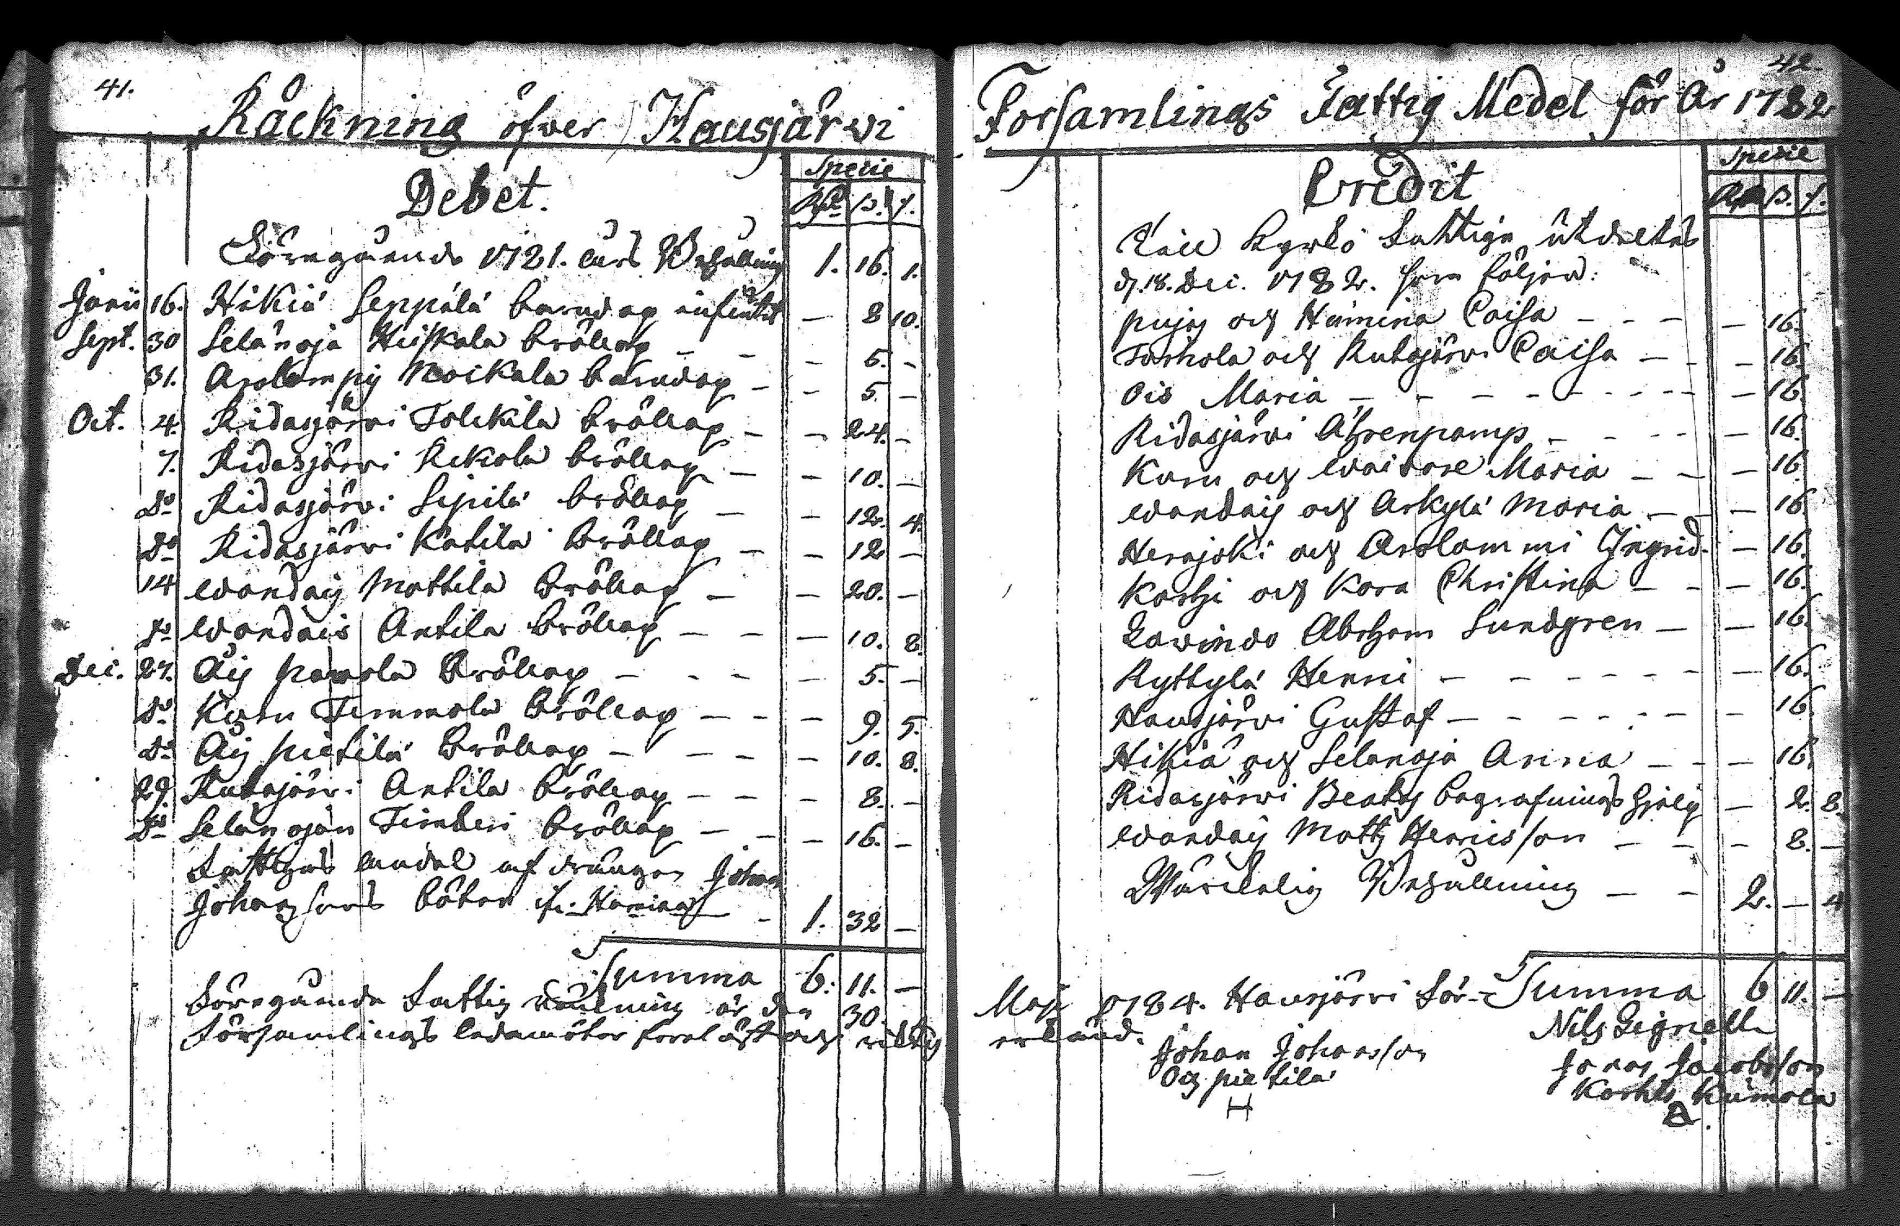 41.
Räckning öfver Hausjärvi
Debet.
Specie
Rd. s. r.
Föregående 1781. års Behållning 1. 16. 1.
Junii 16. Hikiä Seppälä barndop — 8 10.
Sept. 30 Selänoja Heiskala bröllop — 5. —
31. Arolampij Noikala barndop — — 5 —
Oct. 4. Ridasjärvi Tolkila bröllop — — 24. —
7. Ridasjärvi Rekola bröllop — — 10. —
Do Ridasjärvi Sipilä bröllop — — 12. 4.
Do Ridasjärvi Katila Bröllop — — 12 —
14 Wandaij Mattila Bröllop — — 20. —
Do Wandais Antila bröllop — — — 10. 8.
Dec. 27. Oij Pamola Bröllop — - - — 5. —
Do Karu Timmola Bröllop — - — 9. 5.
Do Oij Pietilä Bröllop — — — — 10. 8.
29. Kurajärvi Antila bröllop — — — — 8. —
Do Selänojan Timberi bröllop — — — 16. —
Fattigas andel af drängen Johan
Johanssons böter — 1. 32 —
Summa 6. 11. —
Föregående Fattig Räkning är den 30.
Församlings ledamöter föreläst och riktig
42.
Forsamlings Fattig Medel för År 1782
Credit
Specie
Rd. s. r.
Till Kyrko Fattiga utdeltes
d. 18. Dec. 1782. som följer:
Pujo och Hamina Caisa — - - — — 16.
Torhola och Rutajärvi Caisa — - — 16.
Ois Maria — - - - - - - - — 16.
Ridasjärvi Ahrenpamp — - - - — 16.
Karu och Waivare Maria — — — 16
Wandaij och Arkylä Maria — — — 16
Herajoki och Arolammi Ingrid. — 16.
Karhi och Kara Christina — — — 16.
Lavindo Abraham Sundgren — — 16.
Ryttylä Henni — - - - - - - — 16.
Hausjärvi Gustaf — - - - - - — 16.
Hikiä och Selänoja Anna — — — 16.
Ridasjärvi Beatas begrafnings hjelp — 2. 8.
Wandaij Matts Henricsson — — — 8. —
Wärckelig Behållning — — 2. — 4
Summa 6 11. —
Maji 1784. Hausjärvi För-
erkänd.
Nils Gignell
Johan Johansson
Oij Pietilä
H
Jonas Jacobsson
Karhis Kumola
a.